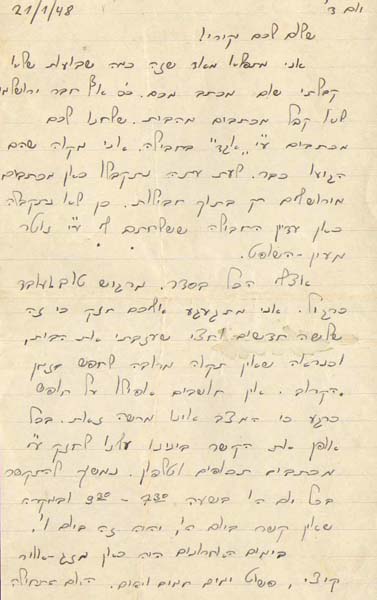 יום ד'
21/1/48
שלום לכם יקירי!
אני מתפלא מאד שזה כמה שבועות שלא
קבלתי שום מכתב מכם. גם אף חבר ירושלמי
לא קבל מכתבים מהבית. שלחנו לכם
מכתבים ע"י "אגד" בחבילה. אני מקוה שהם
הגיעו כבר. לעת עתה נתקבלו כאן מכתבים
מירושלים רק בתוך חבילות. כן לא נתקבלה
כאן עדיין החבילה ששלחתם לי ע"י נוטר
מעין-השופט.
אצלי הכל בסדר. מרגיש טוב ועובד
כרגיל. אני מתגעגע אליכם חזק כי זה
שלושה חדשים וחצי שעזבתי את הבית,
וכנראה שאין תקוה מרובה לחפש בזמן
הקרוב. אין חושבים אפילו על חופש
כרגע כי המצב אינו מרשה זאת. בכל
אופן את הקשר בינינו עלינו לחזק ע"י
מכתבים תכופים וטלפון. נמשיך להתקשר
בכל יום ה' בשעה 7.30 - 9.00 ובמקרה
שאין קשר ביום ה', יהיה זה ביום ו'.
בימים האחרונים היה כאן מזג-אויר
קיצי, פשוט ימים חמים ויפים. האם התחילה